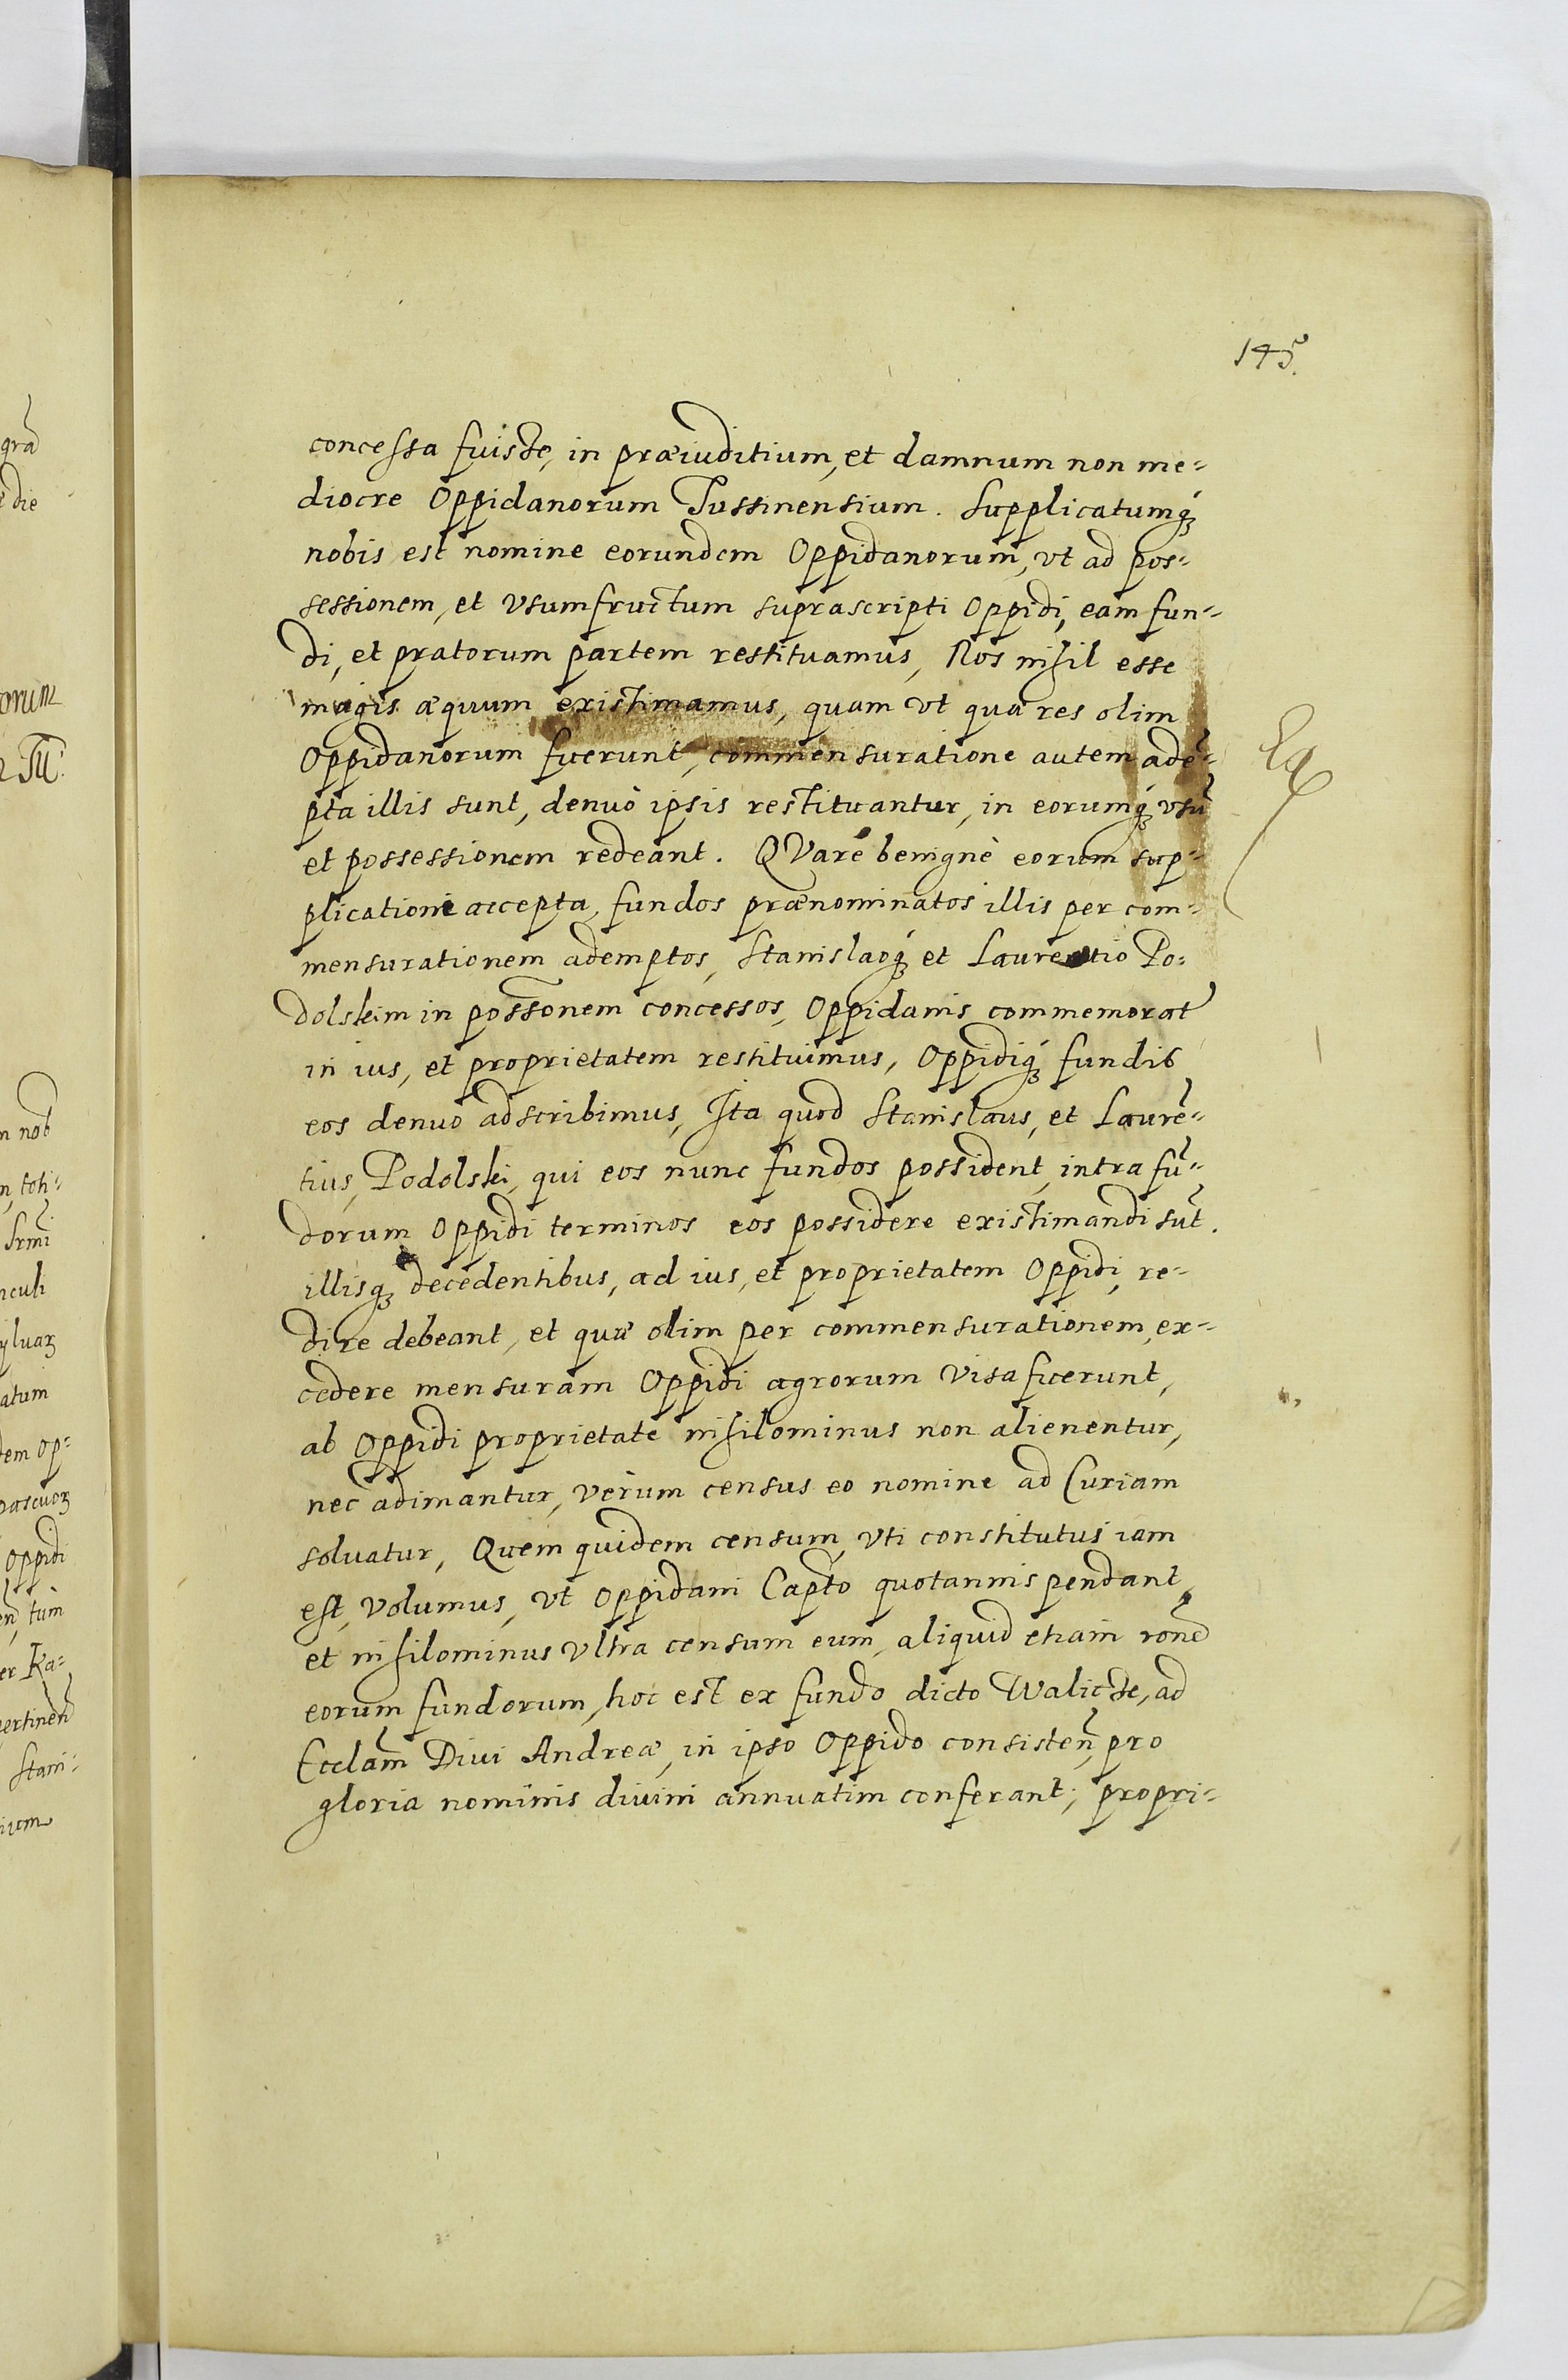 145.
concessa fuisse, in præiuditium, et damnum non me-
diocre Oppidanorum Tussinensium. Supplicatumq3
nobis est nomine eorundem Oppidanorum, vt ad pos-
sessionem, et vsumfructum suprascripti Oppidi, eam fun-
di, et pratorum partem restituamus, Nos nihil esse
magis æquum existimamus, quam vt quæ res olim
Oppidanorum fuerunt, commensuratione autem adē-
pta illis sunt, denuò ipsis restituantur, in eorumq3 vsū
et possessionem redeant. QVare benignè eorum sup-
plicatione accepta, fundos prænominatos illis per com-
mensurationem ademptos, Stanislaoq3 et Laurentio Po-
dolskim in possonem concessos, Oppidanis commemorat
in ius, et proprietatem restituimus, Oppidiq3 fundis
eos denuò adscribimus, Ita quod Stanislaus, et Laurē-
tius, Podolski, qui eos nunc fundos possident, intra fū-
dorum Oppidi terminos eos possidere existimandi sūt.
illisq3 decedentibus, ad ius, et proprietatem Oppidi, re-
dire debeant, et quæ olim per commensurationem, ex-
cedere mensuram Oppidi agrorum visa fuerunt,
ab Oppidi proprietate nihilominus non alienentur,
nec adimantur, verùm census eo nomine ad Curiam
soluatur, Quem quidem censum, vti constitutus iam
est, volumus, vt Oppidani Capto quotannis pendant,
et nihilominus vltra censum eum, aliquid etiam rone
eorum fundorum, hoc est ex fundo dicto Walicze, ad
Ecclam Diui Andreæ, in ipso Oppido consisten, pro
gloria nominis diuini annuatim conferant, propri-